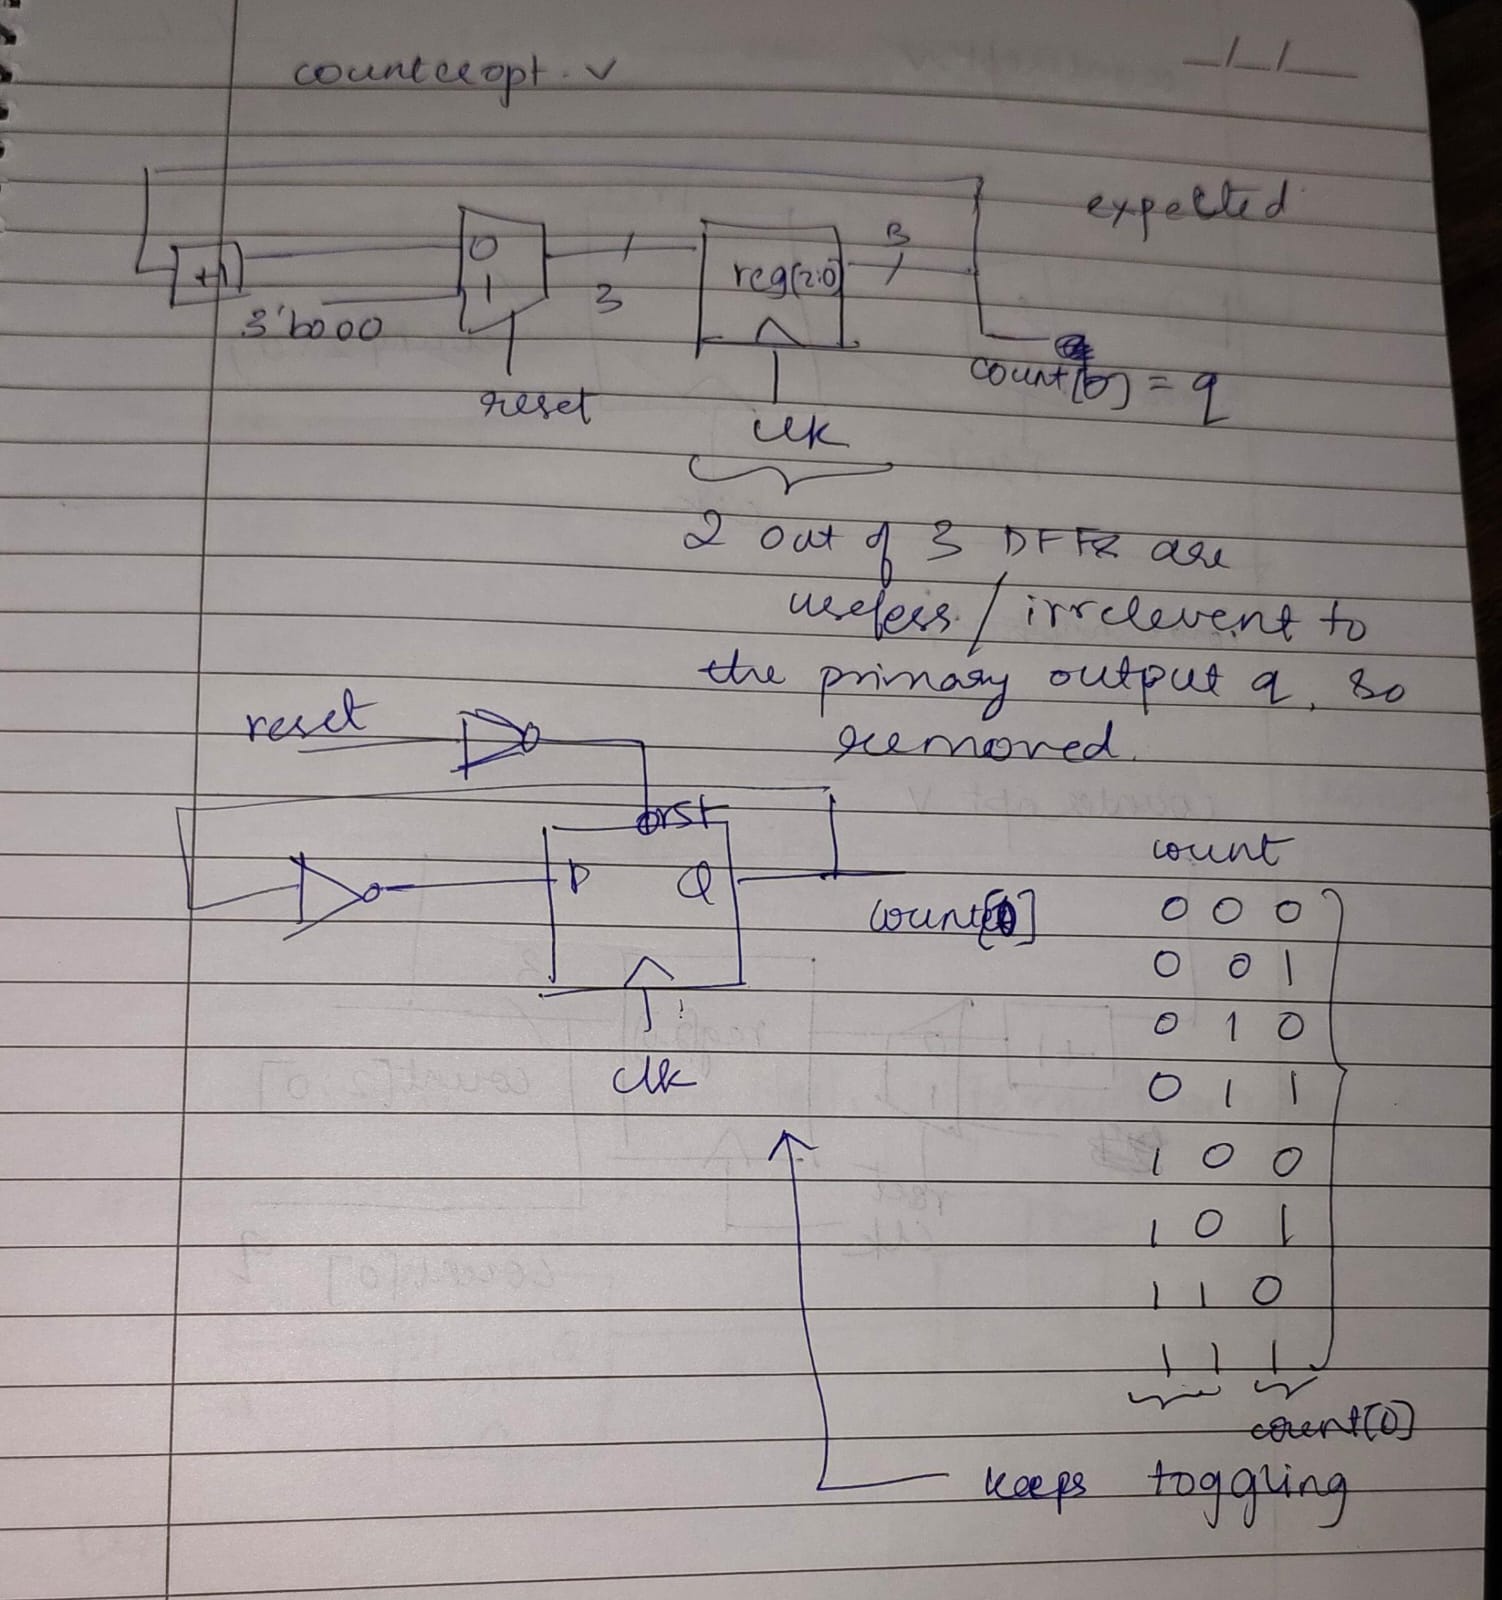 counteropt.v
_/_/_
expected
+1
0
1
3'b000
3
reg[2:0]
3
reset
clk
count[0] = q
2 out of 3 DFFs are
useless / irrelevent to
the primary output q, so
removed.
reset
rst
D Q
count[0]
clk
count
0 0 0
0 0 1
0 1 0
0 1 1
1 0 0
1 0 1
1 1 0
1 1 1
count[0]
keeps toggling